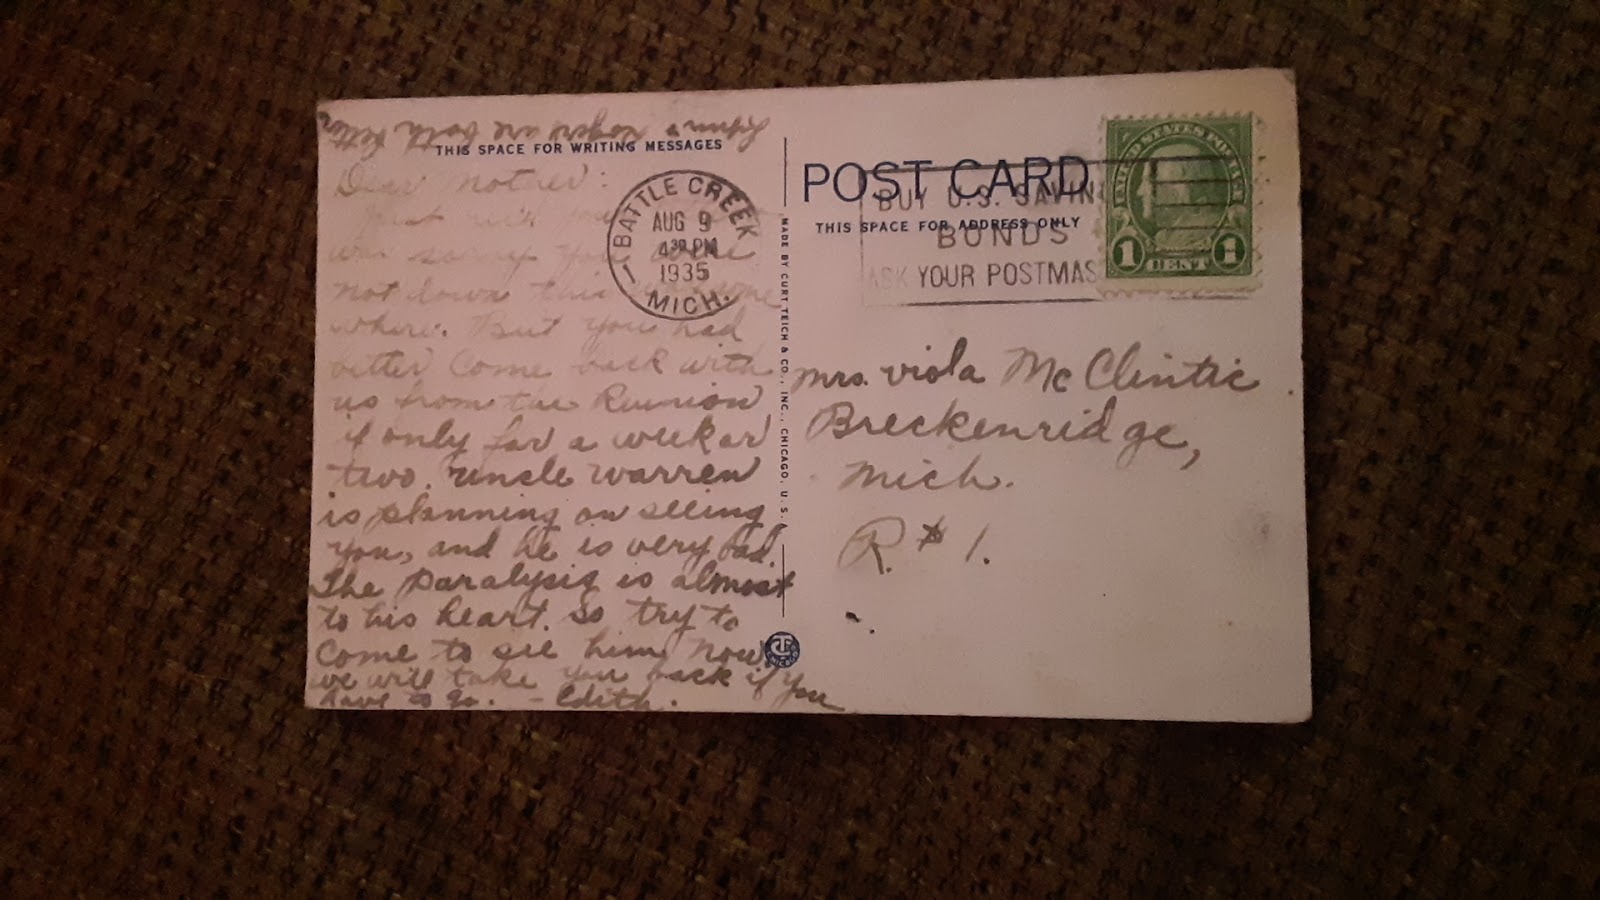 & Rogers are both better
THIS SPACE FOR WRITING MESSAGES
Dear Mother:
Just
was sorry you were
not down this
where. But you had
better Come back with
us from the Reunion
if only for a week or
two. Uncle Warren
is planning on seeing
you, and he is very bad.
The paralysis is almost
to his heart. So try to
Come to see him now,
we will take you back if you
have to go. - Edith.
BATTLE CREEK
AUG 9
4 30 PM
1935
MICH.
MADE BY CURT TEICH & CO., INC., CHICAGO, U.S.A.
POST CARD
THIS SPACE FOR ADDRESS ONLY
BUY U.S. SAVIN
BONDS
ASK YOUR POSTMAS
UNITED STATES POSTAGE
1 CENT 1
Mrs. Viola McClintic
Breckenridge,
Mich.
R. # 1.